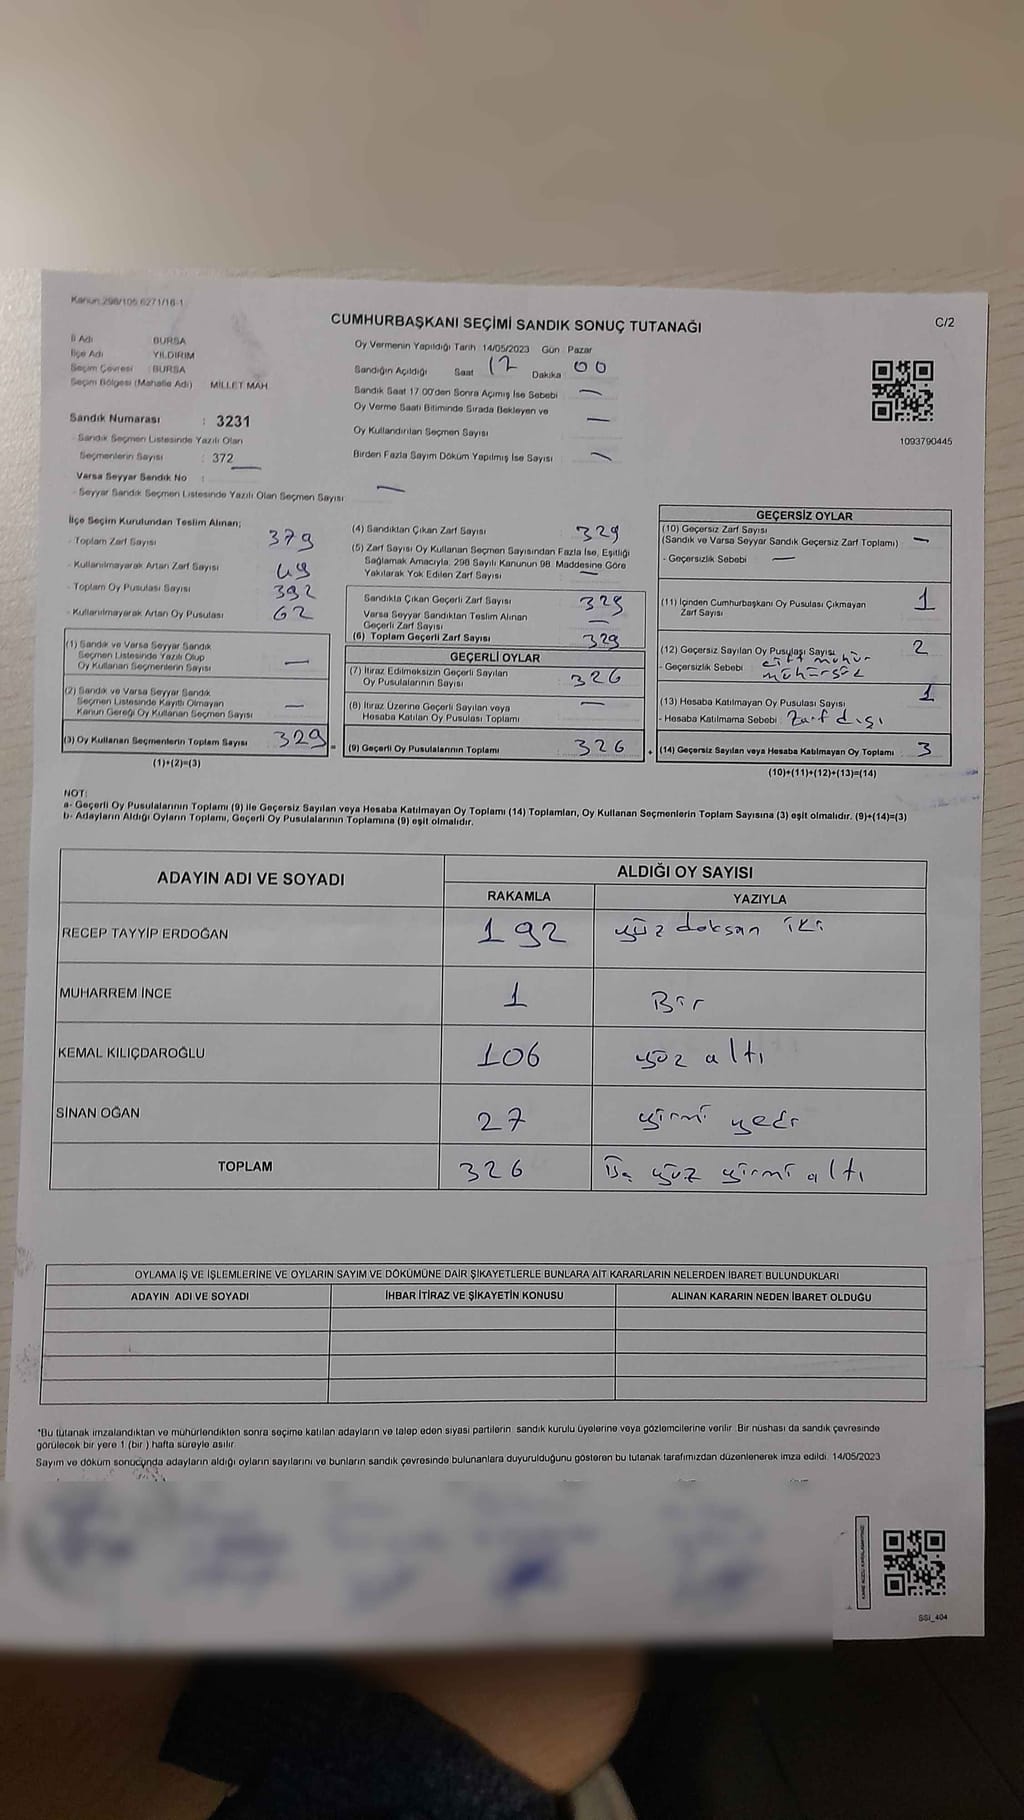 Kanun:298/105 6271/16-1
CUMHURBAŞKANI SEÇİMİ SANDIK SONUÇ TUTANAĞI
C/2
İl Adı BURSA
İlçe Adı YILDIRIM
Seçim Çevresi : BURSA
Seçim Bölgesi (Mahalle Adı) MİLLET MAH
Oy Vermenin Yapıldığı Tarih 14/05/2023 Gün Pazar
Sandığın Açıldığı Saat 17 Dakika 00
Sandık Saat 17.00'den Sonra Açımış İse Sebebi —
Oy Verme Saati Bitiminde Sırada Bekleyen ve
Oy Kullandırılan Seçmen Sayısı —
Birden Fazla Sayım Döküm Yapılmış İse Sayısı —
1093790445
Sandık Numarası : 3231
- Sandık Seçmen Listesinde Yazılı Olan
Seçmenlerin Sayısı : 372
Varsa Seyyar Sandık No :
- Seyyar Sandık Seçmen Listesinde Yazılı Olan Seçmen Sayısı —
İlçe Seçim Kurulundan Teslim Alınan;
- Toplam Zarf Sayısı 379
- Kullanılmayarak Artan Zarf Sayısı 49
- Toplam Oy Pusulası Sayısı 392
- Kullanılmayarak Artan Oy Pusulası 62
(1) Sandık ve Varsa Seyyar Sandık
Seçmen Listesinde Yazılı Olup
Oy Kullanan Seçmenlerin Sayısı —
(2) Sandık ve Varsa Seyyar Sandık
Seçmen Listesinde Kayıtlı Olmayan
Kanun Gereği Oy Kullanan Seçmen Sayısı —
(3) Oy Kullanan Seçmenlerin Toplam Sayısı 329 =
(1)+(2)=(3)
(4) Sandıktan Çıkan Zarf Sayısı 329
(5) Zarf Sayısı Oy Kullanan Seçmen Sayısından Fazla İse, Eşitliği
Sağlamak Amacıyla, 298 Sayılı Kanunun 98. Maddesine Göre
Yakılarak Yok Edilen Zarf Sayısı —
Sandıkta Çıkan Geçerli Zarf Sayısı 329
Varsa Seyyar Sandıktan Teslim Alınan
Geçerli Zarf Sayısı —
(6) Toplam Geçerli Zarf Sayısı 329
GEÇERLİ OYLAR
(7) İtiraz Edilmeksizin Geçerli Sayılan
Oy Pusulalarının Sayısı 326
(8) İtiraz Üzerine Geçerli Sayılan veya
Hesaba Katılan Oy Pusulası Toplamı —
(9) Geçerli Oy Pusulalarının Toplamı 326 +
GEÇERSİZ OYLAR
(10) Geçersiz Zarf Sayısı
(Sandık ve Varsa Seyyar Sandık Geçersiz Zarf Toplamı) —
- Geçersizlik Sebebi —
(11) İçinden Cumhurbaşkanı Oy Pusulası Çıkmayan
Zarf Sayısı 1
(12) Geçersiz Sayılan Oy Pusulası Sayısı 2
- Geçersizlik Sebebi çift mühür
mühürsüz
(13) Hesaba Katılmayan Oy Pusulası Sayısı 1
- Hesaba Katılmama Sebebi Zarf dışı
(14) Geçersiz Sayılan veya Hesaba Katılmayan Oy Toplamı 3
(10)+(11)+(12)+(13)=(14)
NOT:
a- Geçerli Oy Pusulalarının Toplamı (9) ile Geçersiz Sayılan veya Hesaba Katılmayan Oy Toplamı (14) Toplamları, Oy Kullanan Seçmenlerin Toplam Sayısına (3) eşit olmalıdır. (9)+(14)=(3)
b- Adayların Aldığı Oyların Toplamı, Geçerli Oy Pusulalarının Toplamına (9) eşit olmalıdır.
ADAYIN ADI VE SOYADI
ALDIĞI OY SAYISI
RAKAMLA YAZIYLA
RECEP TAYYİP ERDOĞAN 192 yüz doksan iki
MUHARREM İNCE 1 Bir
KEMAL KILIÇDAROĞLU 106 yüz altı
SİNAN OĞAN 27 yirmi yedi
TOPLAM 326 üç yüz yirmi altı
OYLAMA İŞ VE İŞLEMLERİNE VE OYLARIN SAYIM VE DÖKÜMÜNE DAİR ŞİKAYETLERLE BUNLARA AİT KARARLARIN NELERDEN İBARET BULUNDUKLARI
ADAYIN ADI VE SOYADI İHBAR İTİRAZ VE ŞİKAYETİN KONUSU ALINAN KARARIN NEDEN İBARET OLDUĞU
"Bu tutanak imzalandıktan ve mühürlendikten sonra seçime katılan adayların ve talep eden siyasi partilerin sandık kurulu üyelerine veya gözlemcilerine verilir. Bir nüshası da sandık çevresinde
görülecek bir yere 1 (bir ) hafta süreyle asılır.
Sayım ve döküm sonucunda adayların aldığı oyların sayılarını ve bunların sandık çevresinde bulunanlara duyurulduğunu gösteren bu tutanak tarafımızdan düzenlenerek imza edildi. 14/05/2023
SSI_404